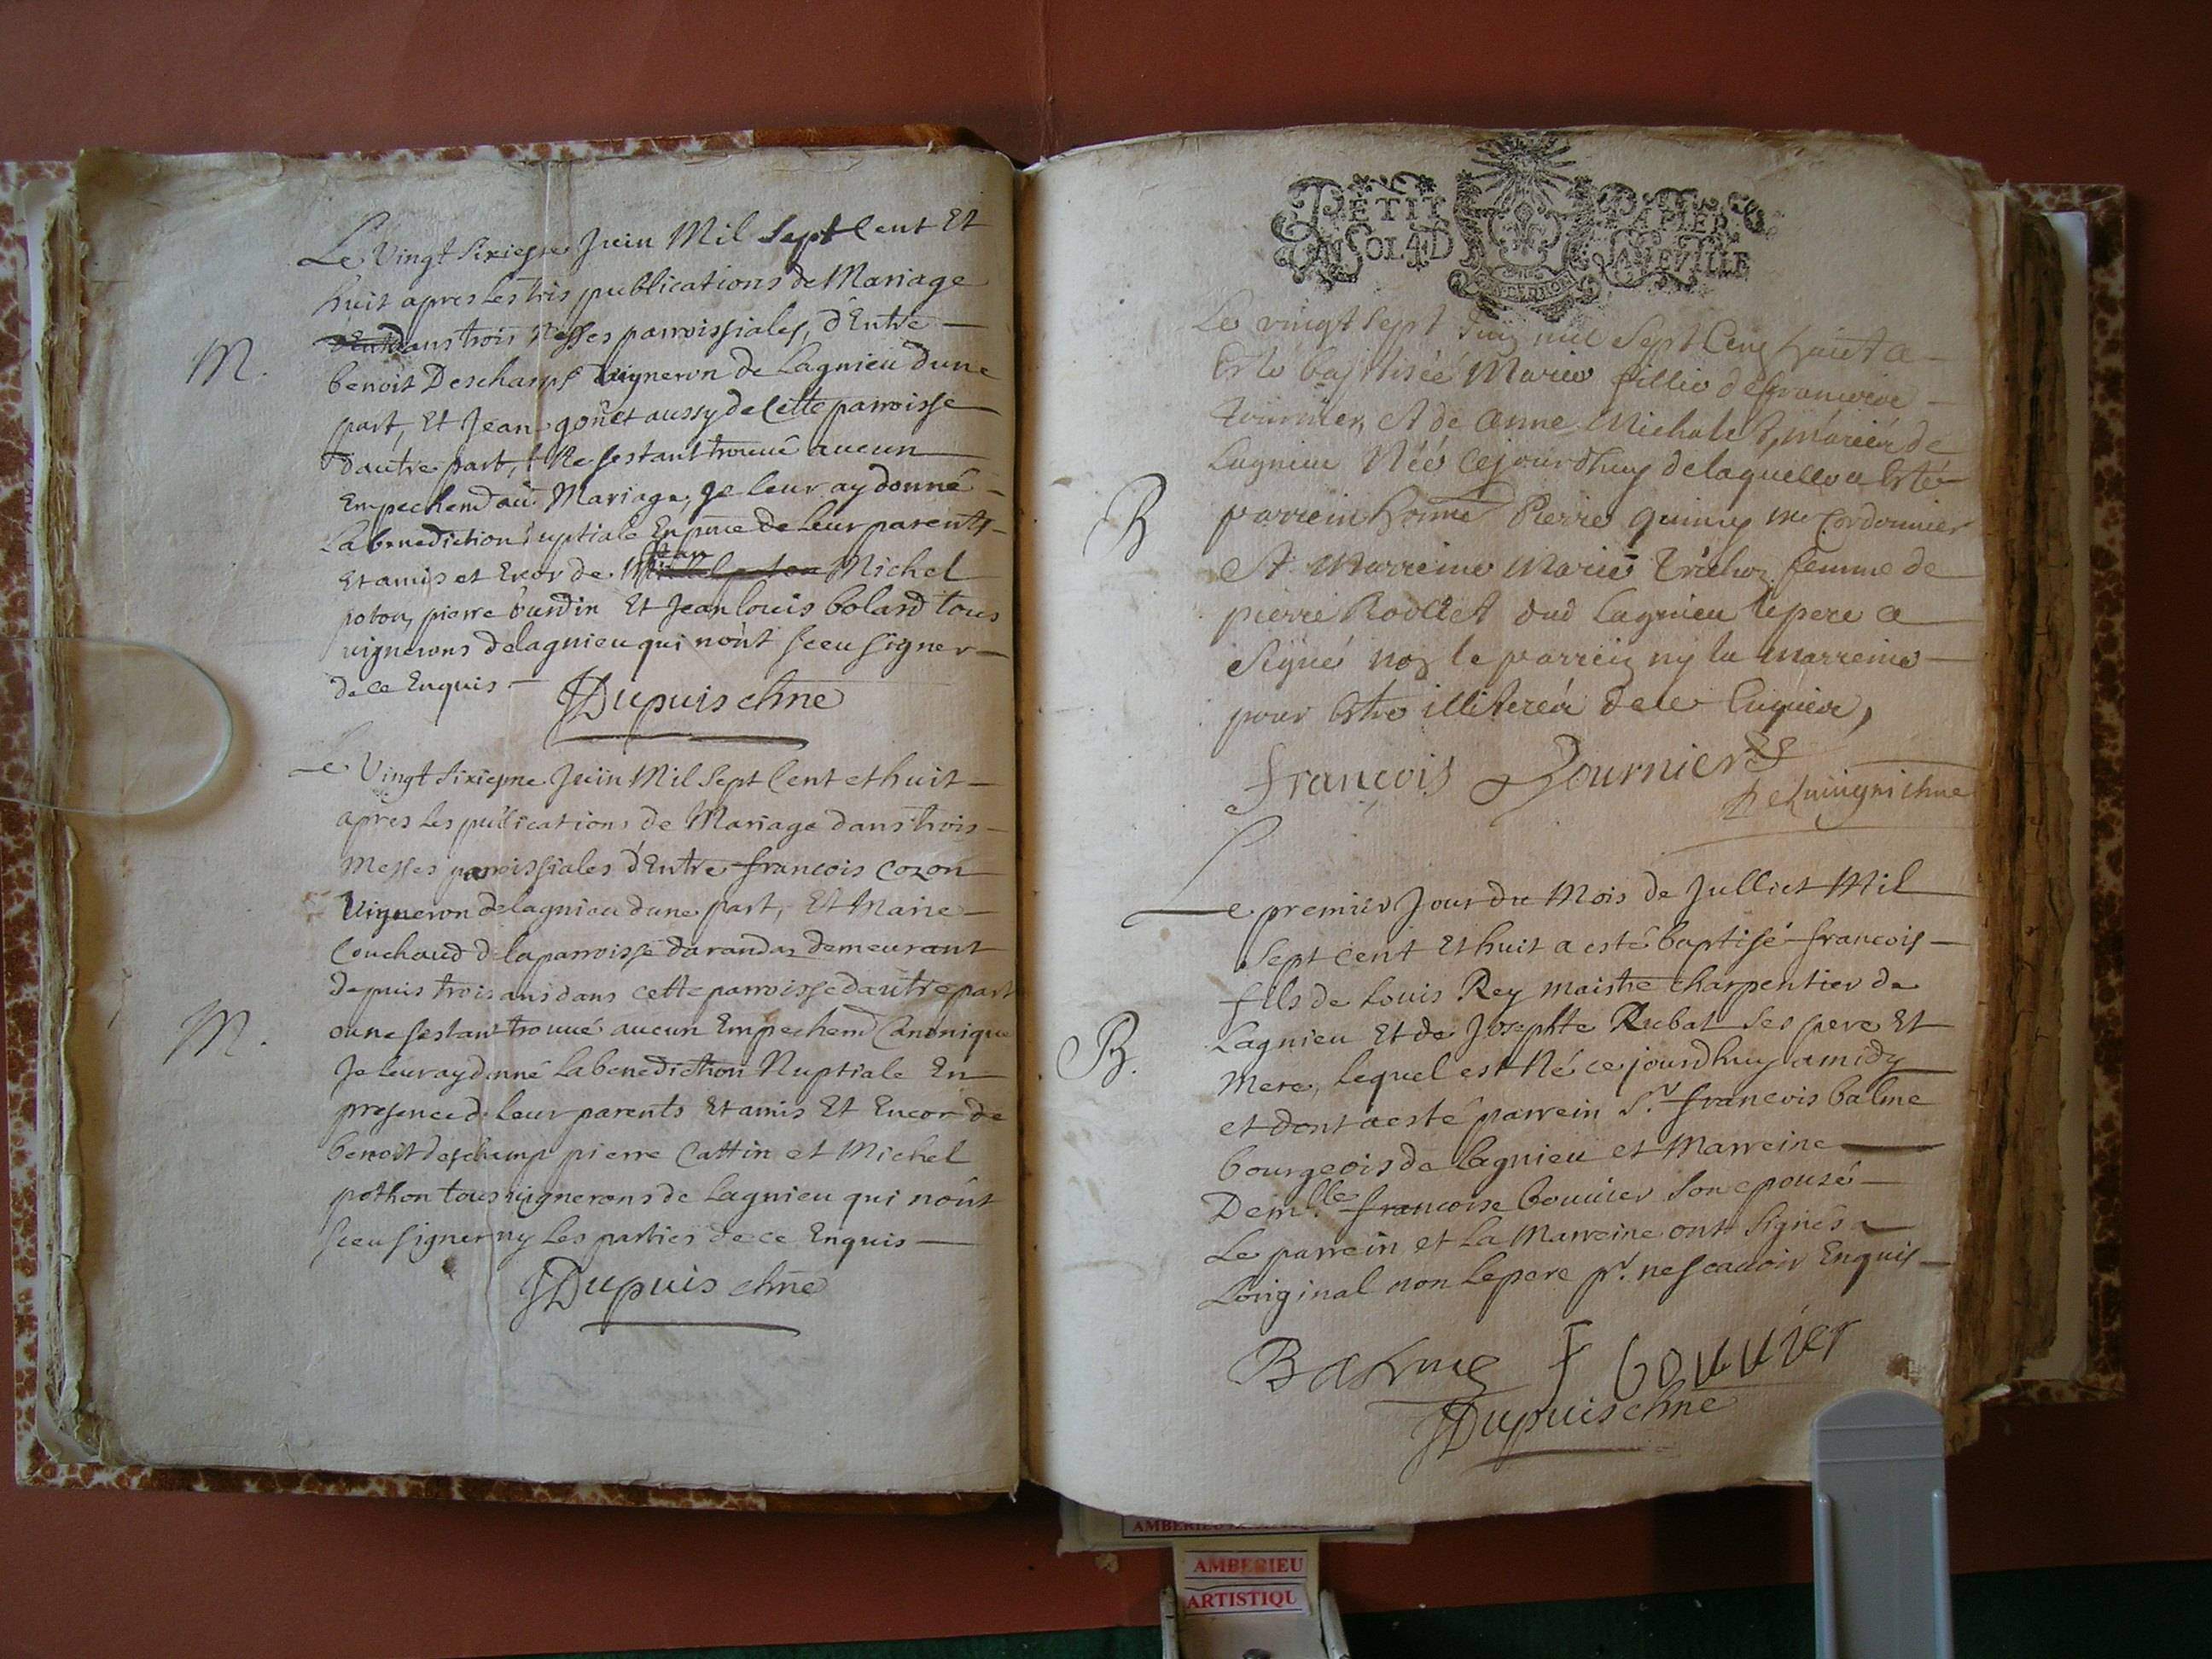 Le Vingt sixiesme Juin Mil Sept Cent Et
huit apres les trois publications de Mariage
dans trois Messes parroissiales, d'Entre
M.
benoit Deschamps Vigneron de Lagnieu dune
part, Et Jean gonet aussy de Cette parroisse
dautre part, Ne sestant trouué aucun
Empechemd au Mariage, Je leur ay donné
La benediction Nuptiale En pnce de leur parents
Jean
Et amis et Encor de Michel
poton, pierre burdin Et Jean louis bolard tous
vignerons delagnieu qui nont sceu signer
de ce Enquis
JDupuis chne
Le Vingt sixiesme Juin Mil Sept Cent et huit
apres les publications de Mariage dans trois
Messes parroissiales d'Entre francois cozon
Vigneron delagnieu dune part, Et Marie
Couchaud de laparroisse darandas demeurant
depuis trois ans dans cette parroisse dautre part
M.
ou ne sestant trouué aucun Empechemd Canonique
Je leur ay donné La benediction Nuptiale En
presence de leur parents Et amis Et Encor de
benoit deschamp pierre Cattin et Michel
pothon tous vignerons de Lagnieu qui nont
sceu signer ny les parties de ce Enquis
JDupuis chne
PETIT PAPIER
UN SOL 4 D LA FEUILLE
Le vingt sept Juin mil Sept Cens huict a
Esté baptiséé Marie fillie de
tournier, et de Anne mariéz de
Lagnieu Néé Cejourdhuy de laquelle a Esté
B
parrein honne Pierre quincy me Cordonnier
Et Marreine Marie femme de
pierre dud Lagnieu le pere a
Signé non le parrein ny la marreine
pour Estre illiteréz de ce Enquis,
francois Tournier
chne
Le premier Jour du Mois de Julliet Mil
Sept Cent Et huit a esté baptisé francois
fils de Louis Rey maistre charpentier de
Lagnieu Et de Josephte Rubat ses pere Et
B.
Mere, lequel est Né ce jourdhuy a midy
et dont a esté parrein Sr francois balme
bourgeois de lagnieu et Marreine
Demlle francoise bouuier son epouse
Le parrein et la Marreine ont signés a
Loriginal non le pere pr. ne scauoir Enquis
Balme F bouuier
JDupuis chne
AMBERIEU
ARTISTIQU